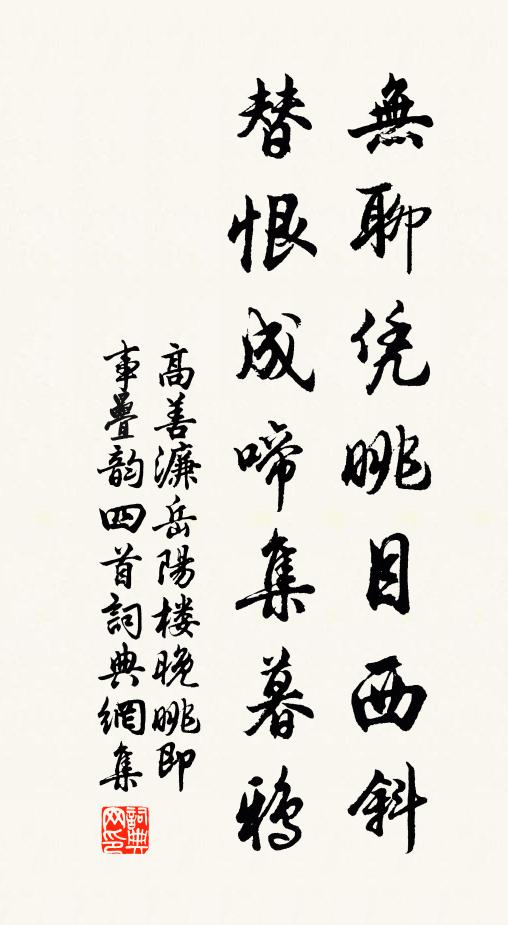 無聊凭眺目西斜
替恨成啼集暮鴉
高善濂岳陽楼晚眺即
事疊韵四首詞典網集
詞典
网印